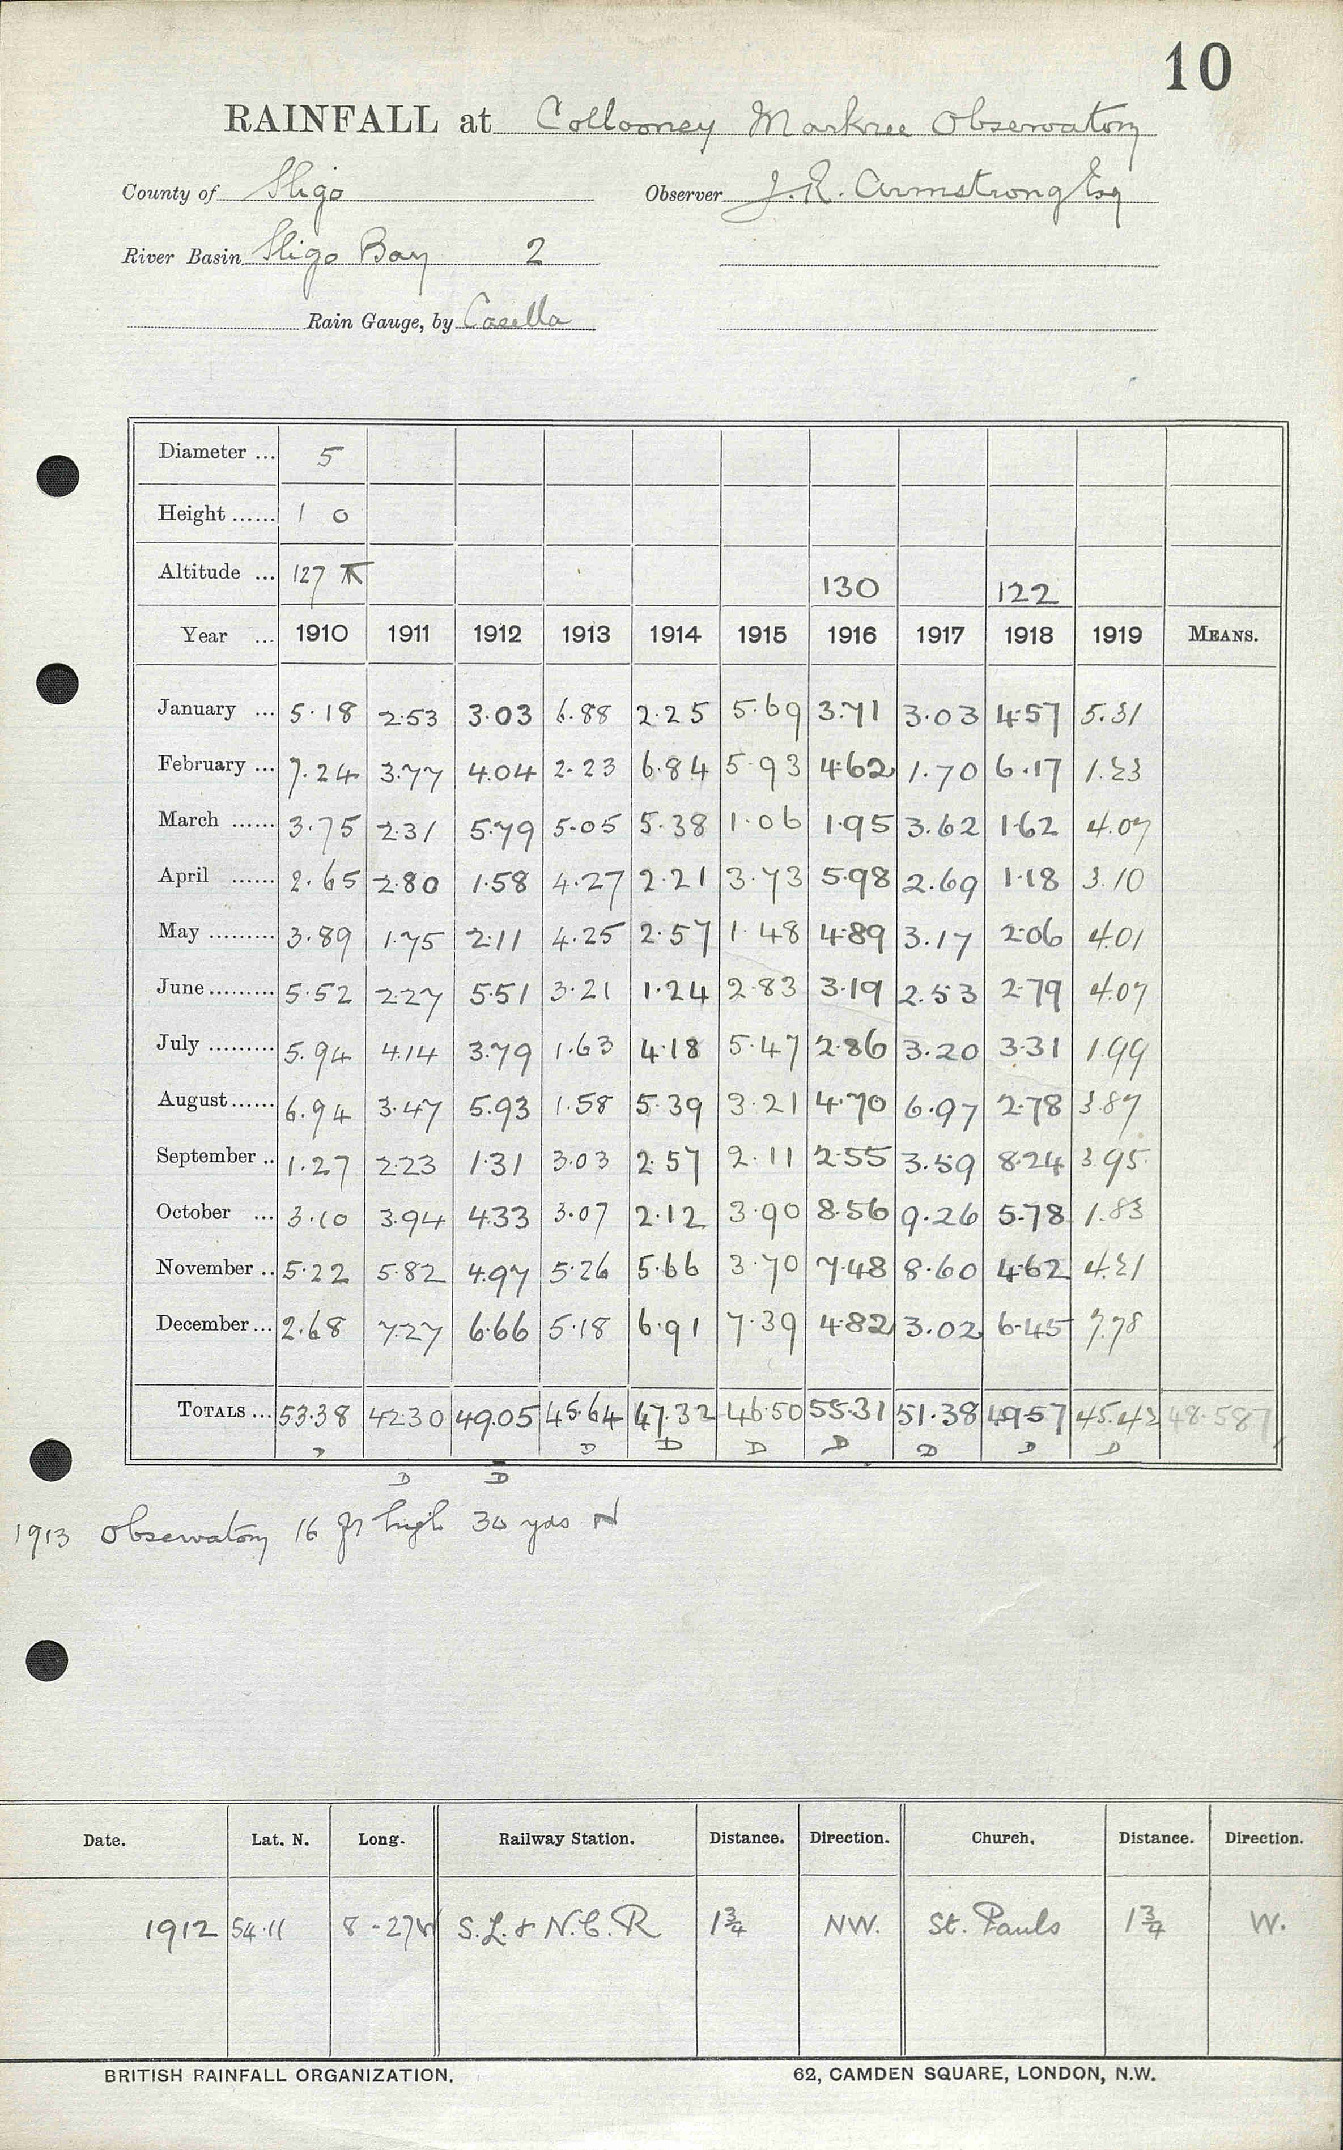 10
RAINFALL at Collooney Markree Observatory
County of Sligo Observer J.R. Armstrong Esq
River Basin Sligo Bay 2
Rain Gauge, by Casella
Diameter ... 5
Height ...... 1 0
Altitude ... 127 130 122
Year ... 1910 1911 1912 1913 1914 1915 1916 1917 1918 1919 MEANS.
January ... 5.18 2.53 3.03 6.88 2.25 5.69 3.71 3.03 4.57 5.31
February ... 7.24 3.77 4.04 2.23 6.84 5.93 4.62 1.70 6.17 1.23
March ...... 3.75 2.31 5.79 5.05 5.38 1.06 1.95 3.62 1.62 4.07
April ...... 2.65 2.80 1.58 4.27 2.21 3.73 5.98 2.69 1.18 3.10
May ......... 3.89 1.75 2.11 4.25 2.57 1.48 4.89 3.17 2.06 4.01
June ......... 5.52 2.27 5.51 3.21 1.24 2.83 3.19 2.53 2.79 4.07
July ......... 5.94 4.14 3.79 1.63 4.18 5.47 2.86 3.20 3.31 1.99
August ...... 6.94 3.47 5.93 1.58 5.39 3.21 4.70 6.97 2.78 3.87
September .. 1.27 2.23 1.31 3.03 2.57 2.11 2.55 3.59 8.24 3.95
October ... 3.10 3.94 4.33 3.07 2.12 3.90 8.56 9.26 5.78 1.83
November .. 5.22 5.82 4.97 5.26 5.66 3.70 7.48 8.60 4.62 4.21
December ... 2.68 7.27 6.66 5.18 6.91 7.39 4.82 3.02 6.45 7.78
TOTALS ... 53.38 42.30 49.05 45.64 47.32 46.50 55.31 51.38 49.57 45.42 48.587
D D D D D D D D
D D
1913 Observatory 16 ft high 30 yds N
Date. Lat. N. Long. Railway Station. Distance. Direction. Church. Distance. Direction.
1912 54.11 8-27W S.L. & N.C.R 1¾ NW. St. Pauls 1¾ W.
BRITISH RAINFALL ORGANIZATION. 62, CAMDEN SQUARE, LONDON, N.W.